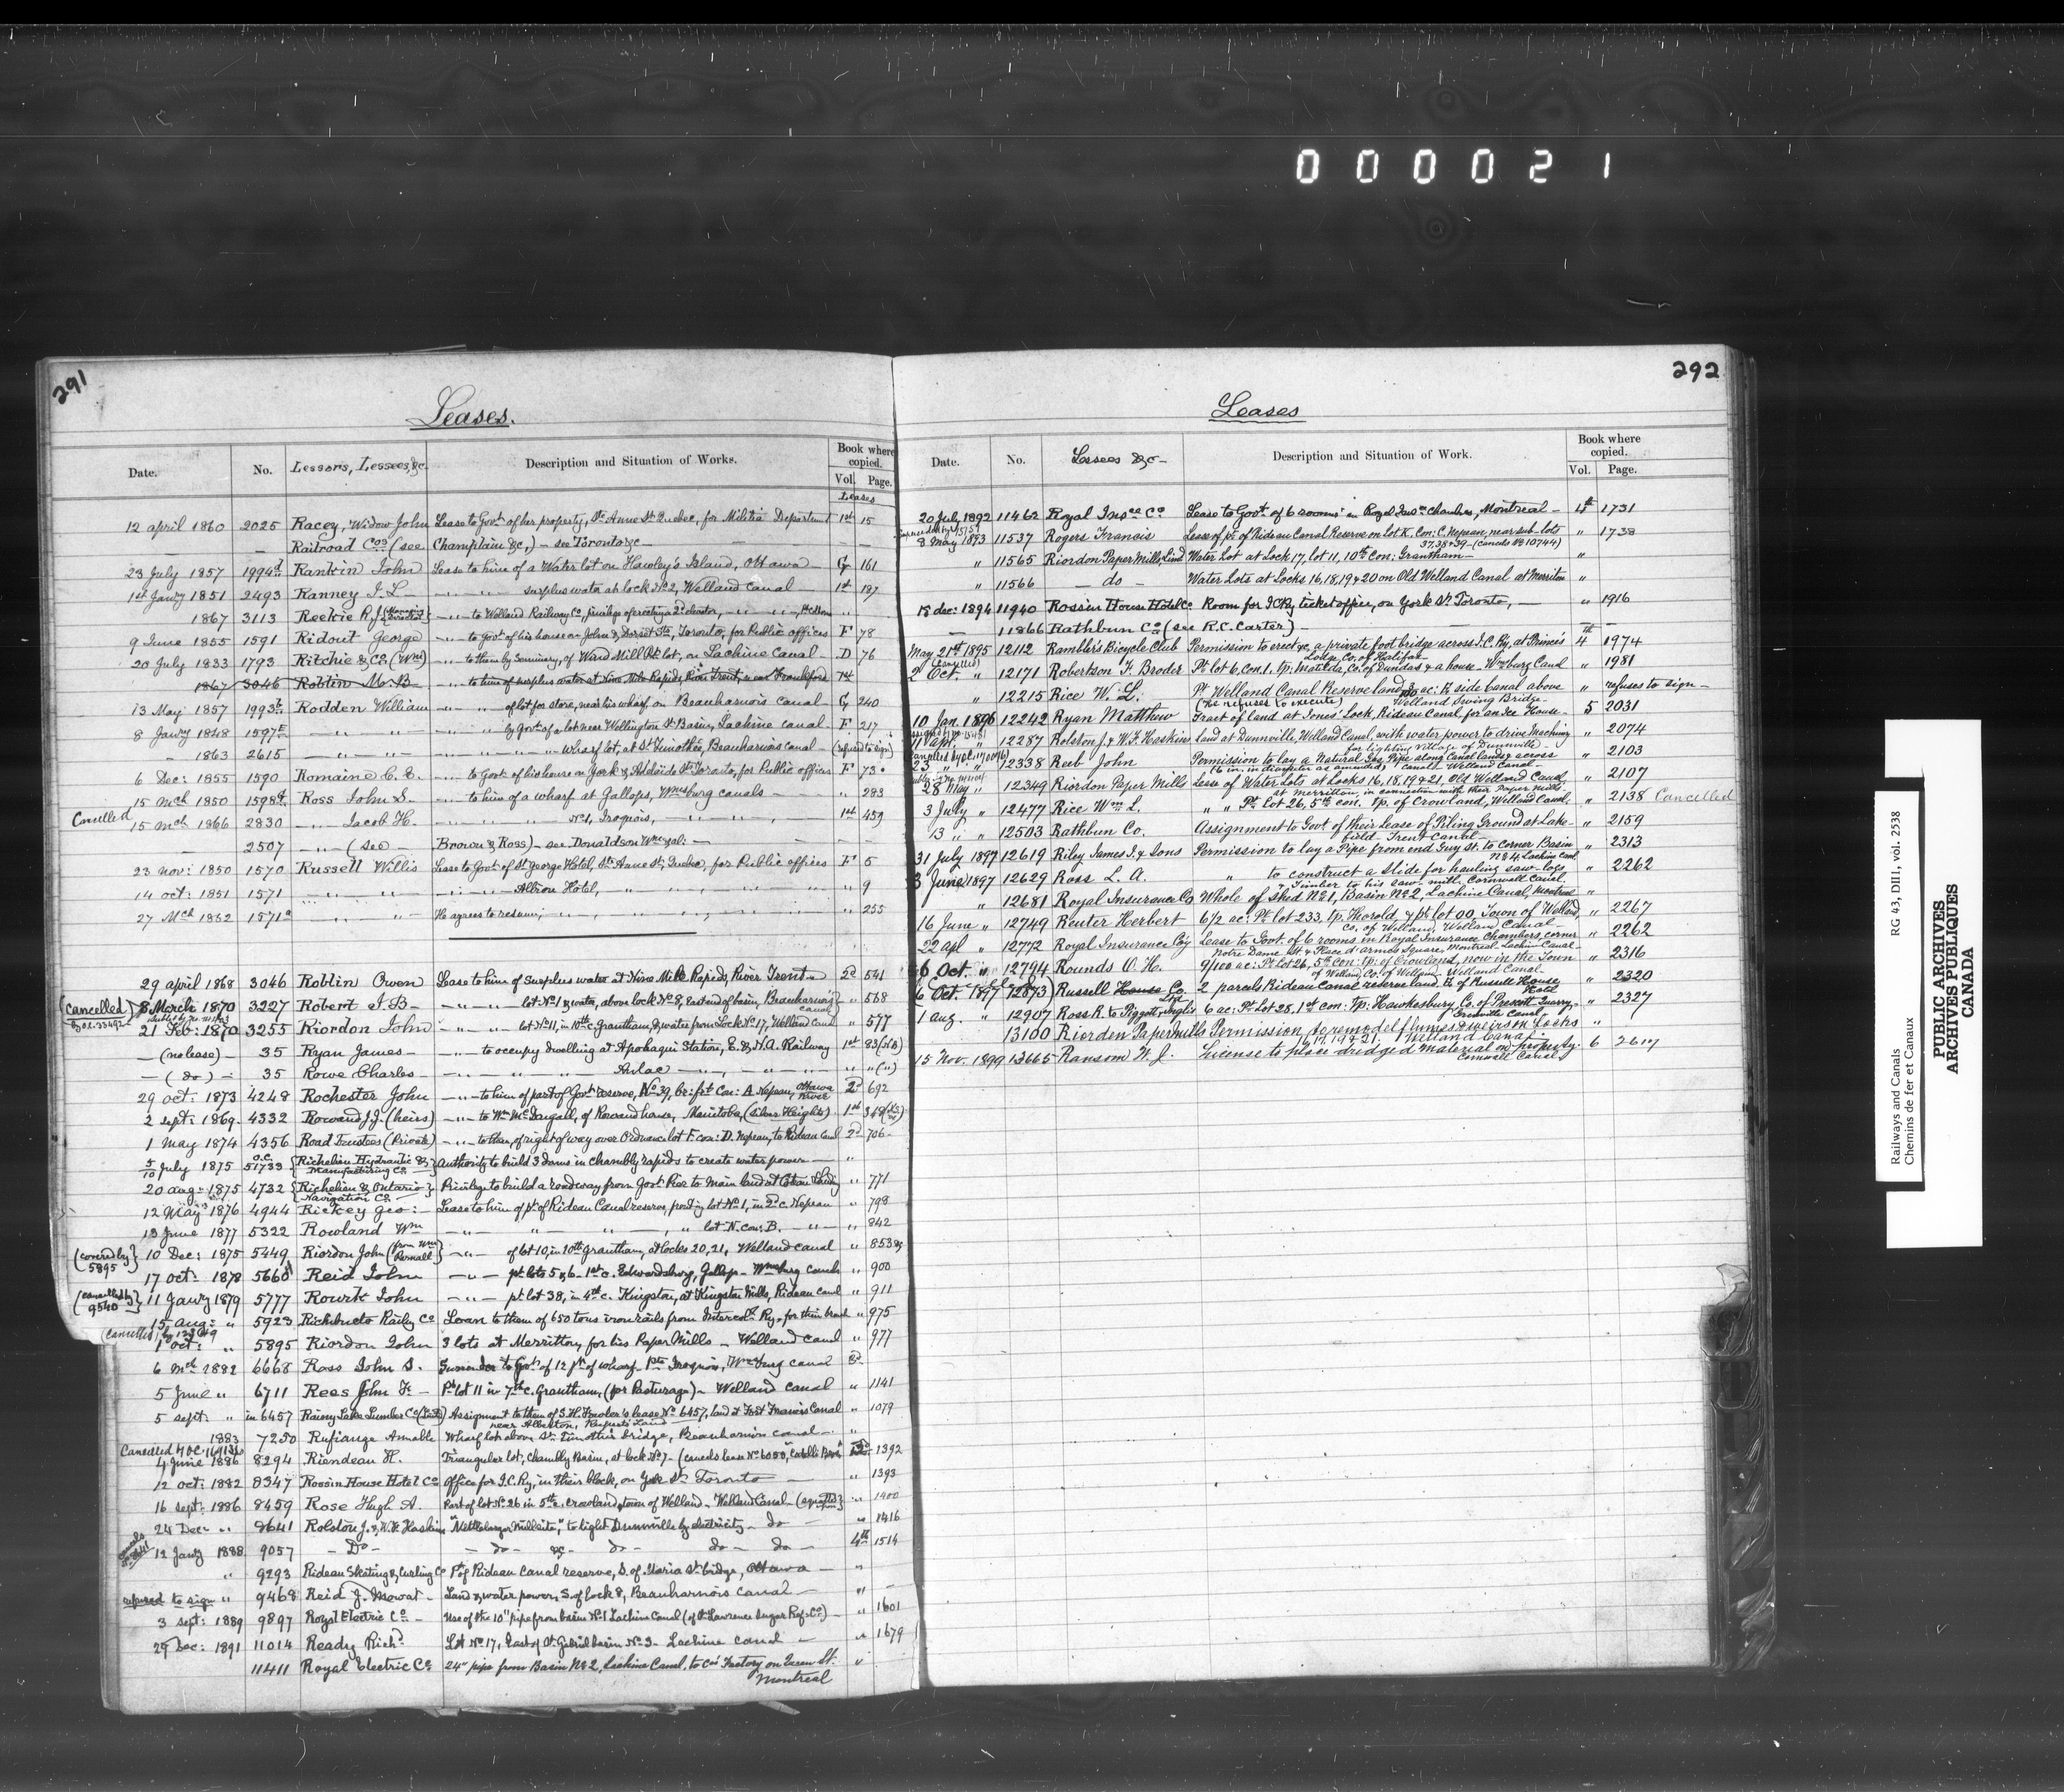 000021
291
Leases.
Date. No. Lessors, Lessees, &c. Description and Situation of Works. Book where copied. Vol. Page.
Leases
12 april 1860 2025 Racey, Widow John Lease to Govt of her property, Ste Anne St Quebec, for Militia Department 1st 15
— — Railroad Cos (see Champlain &c,) — see Toronto &c — — — —
23 July 1857 1994 Rankin John Lease to him of a Water lot on Hawley's Island, Ottawa — G 161
1st Jany 1851 2493 Ranney J. L. — " — surplus water at lock No 2, Welland Canal — 1st 187
1867 3113 Reekie R. J. — " — to Welland Railway Co, privilege of erecting a 2d elevator, — " — "
9 June 1855 1591 Ridout George — " — to Govt of his house on John & Dorset Sts, Toronto, for Public offices F 78
20 July 1833 1793 Ritchie & Co (Wm) — " — to them by Seminary, of Wind Mill Pt lot, on Lachine Canal — D 76
1867 3046 Roblin M. B. — " — to him of surplus water at Nine Mile Rapids, River Trent, near Frankford 1st
13 May 1857 1993 Rodden William — " — " of lot for store, near his wharf, on Beauharnois canal — G 240
8 Jany 1848 1597 — " — " — by Govt of a lot near Wellington St Basin, Lachine canal — F 217
— 1863 2615 — " — " — — " — wharf lot, at St Timothée, Beauharnois canal — (refused to sign)
6 Dec: 1855 1590 Romaine C. E. — " — to Govt of his house on York & Adelaide Sts Toronto, for Public offices F 73
15 Mch 1850 1598 Ross John S. — " — to him of a wharf at Gallops, Wmsburg canals — " 283
Cancelled 15 Mch 1866 2830 — " — Jacob H. — " — " — No 1, Iroquois, — " — " — 1st 459
2507 — " — (see — Brown & Ross) — see Donaldson Wm &al: — — —
23 nov: 1850 1570 Russell Willis Lease to Govt of St George Hotel, Ste Anne St, Quebec, for Public offices F 5
14 oct: 1851 1571 — " — " — — " — " — Albion Hotel, — " — " — " 9
27 Mch 1862 1571a — " — " — He agrees to resume; — " — " — " 255
29 april 1868 3046 Roblin Owen Lease to him of Surplus water at Nine Mile Rapids, River Trent — 2d 541
(Cancelled) 8 March 1870 3227 Robert J. B. — " — " — lot No 1, & water, above lock No 8, East end of basin, Beauharnois canal " 568
21 Feb: 1870 3255 Riordon John — " — " — lot No 11, in 10th c. Grantham, & water from Lock No 17, Welland Canal " 577
— (no lease) — 35 Ryan James — — " — to occupy dwelling at Apohaqui Station, E. & N.A. Railway 1st 83 (NB)
— (do) — 35 Rowe Charles — — " — " — " Aulac — " — " — " " (")
29 oct: 1873 4248 Rochester John — " — to him of part of Govt reserve, No 39, br: ft Con: A Nepean, Ottawa River 2d 692
2 sept: 1869 4332 Rowand J. J. (heirs) — " — to Wm McDougall, of Rowand house, Manitoba, (Silver Heights) 1st 348
1 May 1874 4356 Road Trustees (Private) — " — to them, of right of way over Ordnance lot F. con: D. Nepean, to Rideau Canal 2d 706
5/10 July 1875 O.C. 51733 {Richelieu Hydraulic & Manufacturing Co} Authority to build 3 dams in Chambly rapids to create water power — "
20 aug: 1875 4732 {Richelieu & Ontario Navigation Co} Privilege to build a roadway from Govt Pier to Main land at Coteau Landing " 771
12 May 1876 4944 Rickey Geo: — Lease to him of pt of Rideau Canal reserve, pt lot No 1, in 2d c. Nepean " 798
18 June 1877 5322 Rowland Wm — " — " — " lot N. con: B. — " — " 842
(covered by 5895) 10 Dec: 1875 5449 Riordon John (from Wm Parnall) — " — of lot 10, in 10th Grantham, at locks 20, 21, Welland canal " 853
17 oct: 1878 5660 Reid John — " — pt lots 5 & 6 — 1st c. Edwardsburg, Gallops — Wmsburg canals " 900
(cancelled by 9540) 11 Jany 1879 5777 Rowrk John — " — pt lot 38, in 4th c. Kingston, at Kingston Mills, Rideau canal " 911
15 aug: " 5923 Richibucto Railwy Co Loan to them of 650 tons iron rails from Intercol Ry, for their branch " 975
1 oct: " 5895 Riordon John 3 lots at Merritton, for his Paper Mills — Welland canal " 977
6 Mch 1882 6668 Ross John S. Surrender to Govt of 12 ft of wharf — Pt Iroquois, Wmsburg canal 3d
5 June " 6711 Rees John F. — Pt lot 11 in 7th c. Grantham, (for Pasturage) — Welland Canal " 1141
5 sept: " in 6457 Rainy Lake Lumber Co (Limited) Assignment to them of S. H. Fowler's lease No 6457, land at Fort Francis Canal " 1079
near Alberton,
1883 7250 Rufiange Amable Wharf lot above St. Timothée bridge, Beauharnois canal — "
4 June 1886 8294 Riendeau H. Triangular lot, Chambly Basin, at lock No 7 — 3d 1392
12 oct: 1882 8347 Rossin House Hotel Co Office for I.C. Ry, in their block, on York St. Toronto — " 1393
16 sept: 1886 8459 Rose Hugh A. Part of lot No 26 in 5th c. Crowland, town of Welland — Welland Canal " 1400
24 Dec: " 8641 Rolston J. & W. F. Haskins to light Dunnville by electricity — do " 1416
12 Jany 1888 9057 — Do — — do — &c — do — do — do — 4th 1514
" 9293 Rideau Skating & Curling Co Pt of Rideau Canal reserve, S. of Maria St. bridge, Ottawa — "
refused to sign " 9468 Reid J. Mowat — Land & water power, S. of lock 8, Beauharnois Canal — " —
3 sept: 1889 9897 Royal Electric Co — Use of the 10" pipe from basin No 1 Lachine Canal (of St. Lawrence Sugar Ref. Co) — " 1601
29 Dec: 1891 11014 Ready Richd Lot No 17, East of St. Gabriel basin No 3 — Lachine Canal — " 1679
11411 Royal Electric Co 24" pipe from Basin No 2, Lachine Canal, to Co's Factory on Queen St. "
Montreal
292
Leases
Date. No. Lessees &c — Description and Situation of Work. Book where copied. Vol. Page.
20 July 1892 11462 Royal Insce Co Lease to Govt of 6 rooms in Royal Insce Chambers, Montreal — 4th 1731
8 May 1893 11537 Rogers Francis Lease of pt of Rideau Canal Reserve on lot K. Con: C. Nepean, near sub-lots " 1738
37, 38 & 39 — (cancels No 10744)
" 11565 Riordon Paper Mills, Limd Water Lot at Lock 17, lot 11, 10th Con: Grantham — "
" 11566 — do — Water Lots at Locks 16, 18, 19 & 20 on Old Welland Canal at Merritton "
18 dec: 1894 11940 Rossin House Hotel Co Room for I.C. Ry ticket office, on York St. Toronto, — " 1916
— 11866 Rathbun Co (see R.C. Carter) — — —
May 21st 1895 12112 Rambler's Bicycle Club Permission to erect &c, a private foot bridge across I.C. Ry, at Prince's 4th 1974
Lodge, Co. of Halifax
(Cancelled)
2 Oct. " 12171 Robertson F. Broder Pt lot 6, Con. 1. tp. Matilda, Co. of Dundas & a house — Wmsburg Canal " 1981
" 12215 Rice W. L. Pt Welland Canal Reserve land, ac: E. side Canal above " refuses to sign —
(he refuses to execute) Welland Swing Bridge
10 Jan. 1896 12242 Ryan Matthew Tract of land at Jones' Lock, Rideau Canal, for an Ice House — 5 2031
11 apr. " 12287 Rolston J. & W. F. Haskins Land at Dunnville, Welland Canal, with water power to drive Machinery " 2074
for lighting Village of Dunnville —
23 " " 12338 Reet John Permission to lay a Natural Gas Pipe along Canal lands & across " 2103
28 May " 12349 Riordon Paper Mills Lease of Water Lots at Locks 16, 18, 19 & 21, Old Welland Canal, " 2107
at Merritton, in connection with their Paper Mills
3 July " 12477 Rice Wm L. " " Pt Lot 26, 5th con. tp. of Crowland, Welland Canal, " 2138 Cancelled
13 " " 12503 Rathbun Co. Assignment to Govt of their Lease of Piling Ground at Lake- " 2159
field — Trent Canal —
31 July 1897 12619 Riley James I. & Sons Permission to lay a Pipe from end Guy St. to corner Basin " 2313
No 4, Lachine Canl
3 June 1897 12629 Ross L. A. " to construct a Slide for hauling saw-logs " 2262
& Timber to his saw-mill, Cornwall Canal.
" 12681 Royal Insurance Co Whole of Shed No 1, Basin No 2, Lachine Canal, Montreal "
16 June " 12749 Reuter Herbert 6 1/2 ac: Pt lot 233, tp. Thorold, & pt lot 00, Town of Welland, " 2267
Co. of Welland, Welland Canal —
22 apl " 12772 Royal Insurance Coy Lease to Govt. of 6 rooms in Royal Insurance Chambers, corner " 2262
Notre Dame St. & Place d'armes Square, Montreal — Lachine Canal —
6 Oct. " 12794 Rounds O. H. 9/100 ac: Pt Lot 26, 5th Con: tp. of Crowland, now in the Town " 2316
of Welland, Co. of Welland — Welland Canal —
6 Oct. 1897 12873 Russell House Co. 2 parcels Rideau Canal reserve land, E. of Russell House " 2320
Ltd Hotel
1 aug. " 12907 Ross R. to Piggott & Inglis 6 ac: Pt Lot 25, 1st con: tp: Hawkesbury Co. of Prescott Quarry, " 2327
Grenville Canal
13100 Riorden Papermills Permission, to remodel flumes & weirs on Locks "
16, 17, 19 & 21. Welland Canal
15 Nov. 1899 13665 Ransom W. J. License to place dredged material on property. 6 2617
Cornwall Canal
Railways and Canals RG 43, DIII, vol. 2538
Chemins de fer et Canaux
PUBLIC ARCHIVES
ARCHIVES PUBLIQUES
CANADA